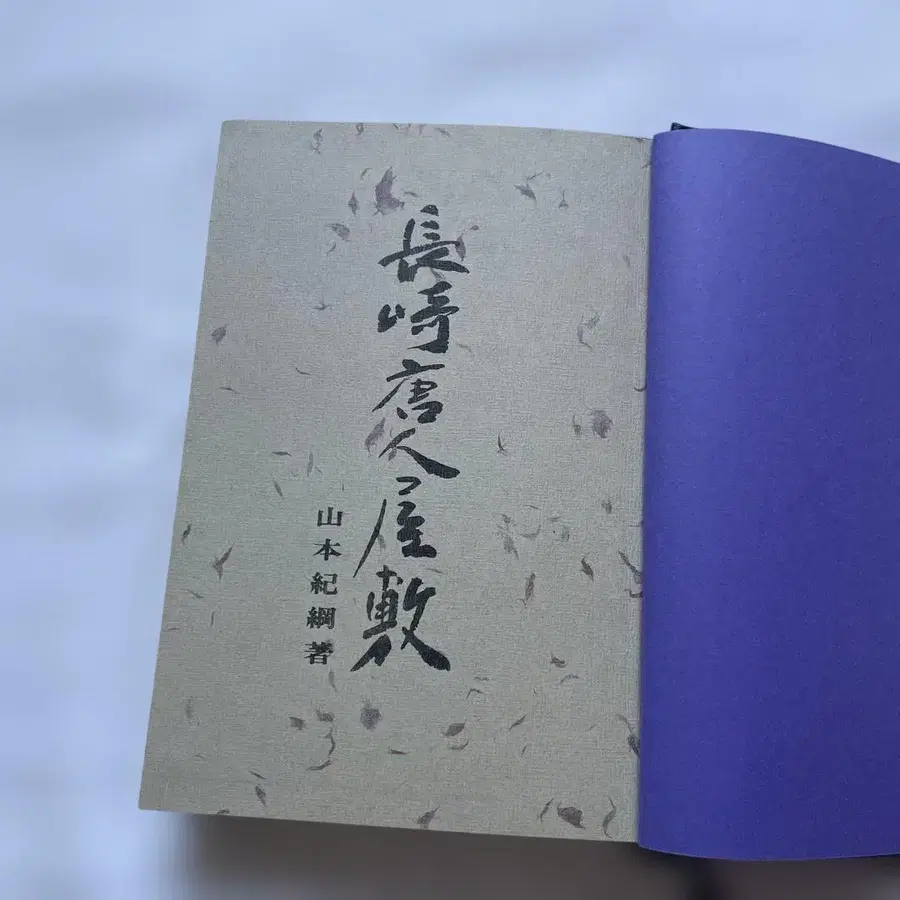 長崎唐人屋敷
山本紀綱著